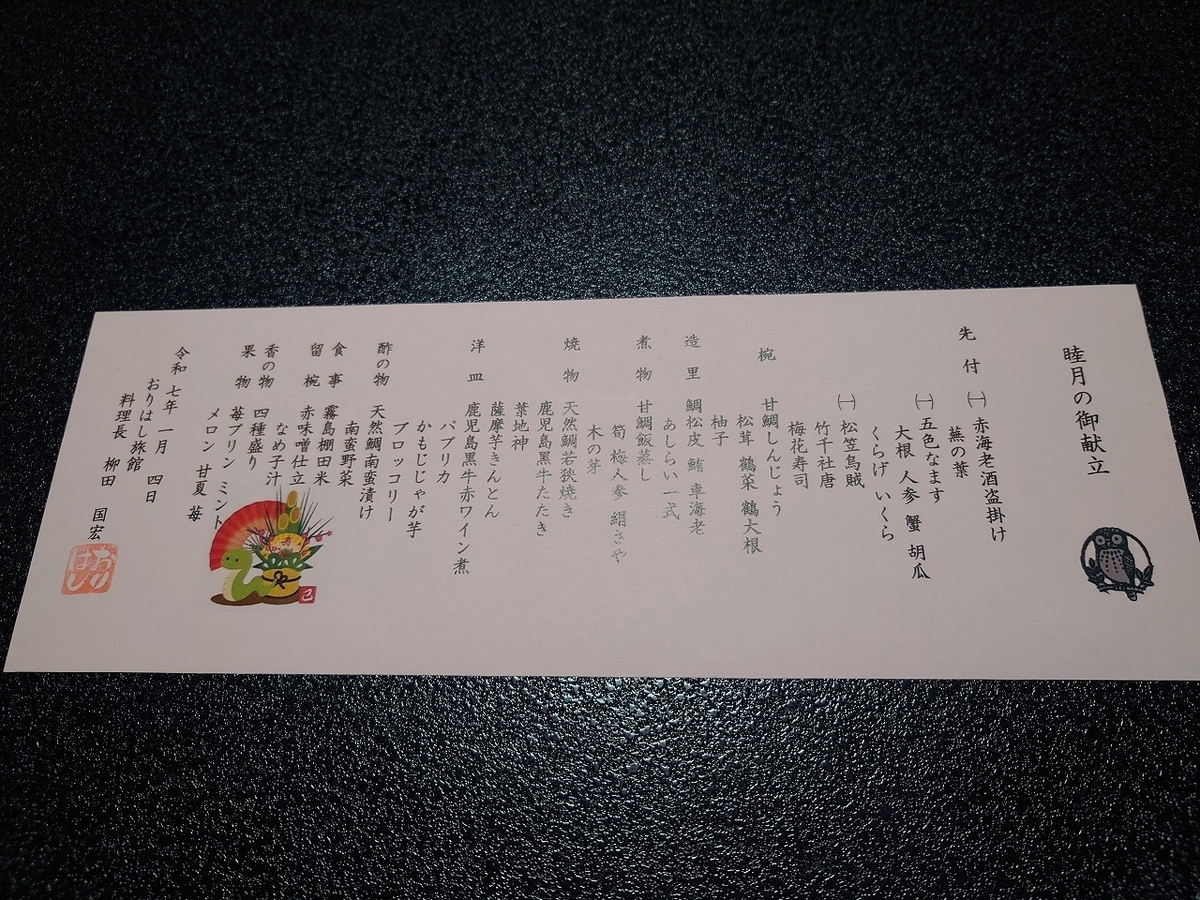 睦月の御献立
先付 ㈠ 赤海老酒盗掛け
蕪の葉
㈠ 五色なます
大根 人参 蟹 胡瓜
くらげ いくら
㈠ 松笠烏賊
竹千社唐
梅花寿司
椀 甘鯛しんじょう
松茸 鶴菜 鶴大根
柚子
造里 鯛松皮 鮪 車海老
あしらい一式
煮物 甘鯛飯蒸し
筍 梅人参 絹さや
木の芽
焼物 天然鯛若狭焼き
鹿児島黒牛たたき
葉地神
薩摩芋きんとん
洋皿 鹿児島黒牛赤ワイン煮
パプリカ
かもじじゃが芋
ブロッコリー
酢の物 天然鯛南蛮漬け
南蛮野菜
食事 霧島棚田米
留椀 赤味噌仕立
なめ子汁
香の物 四種盛り
果物 苺プリン ミント
メロン 甘夏 苺
令和 七年 一月 四日
おりはし旅館
料理長 柳田 国宏
おりはし
己